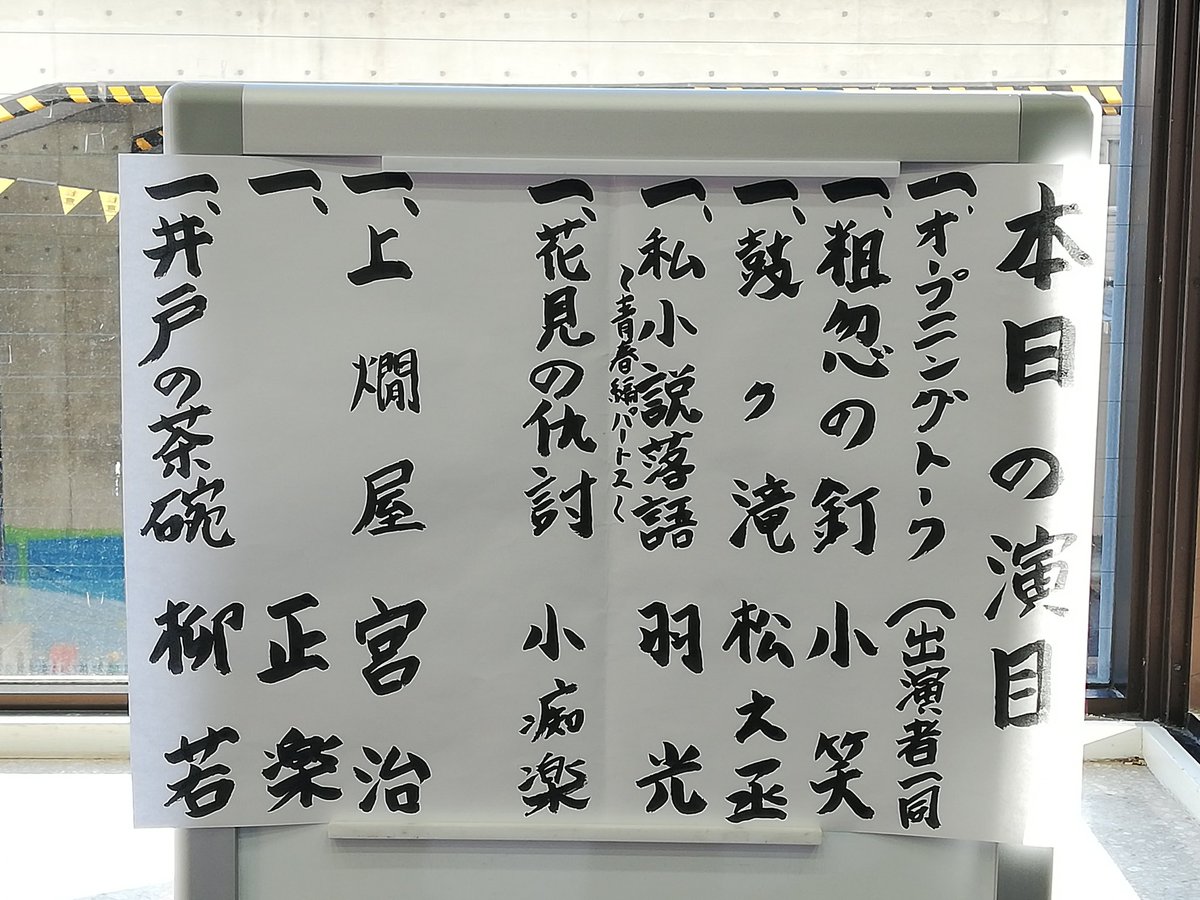 本日の演目
一、オープニングトーク（出演者一同
一、粗忽の釘 小笑
一、鼓ヶ滝 松之丞
一、私小説落語 羽光
〜青春編パート2〜
一、花見の仇討 小痴楽
一、上燗屋 宮治
一、 正楽
一、井戸の茶碗 柳若